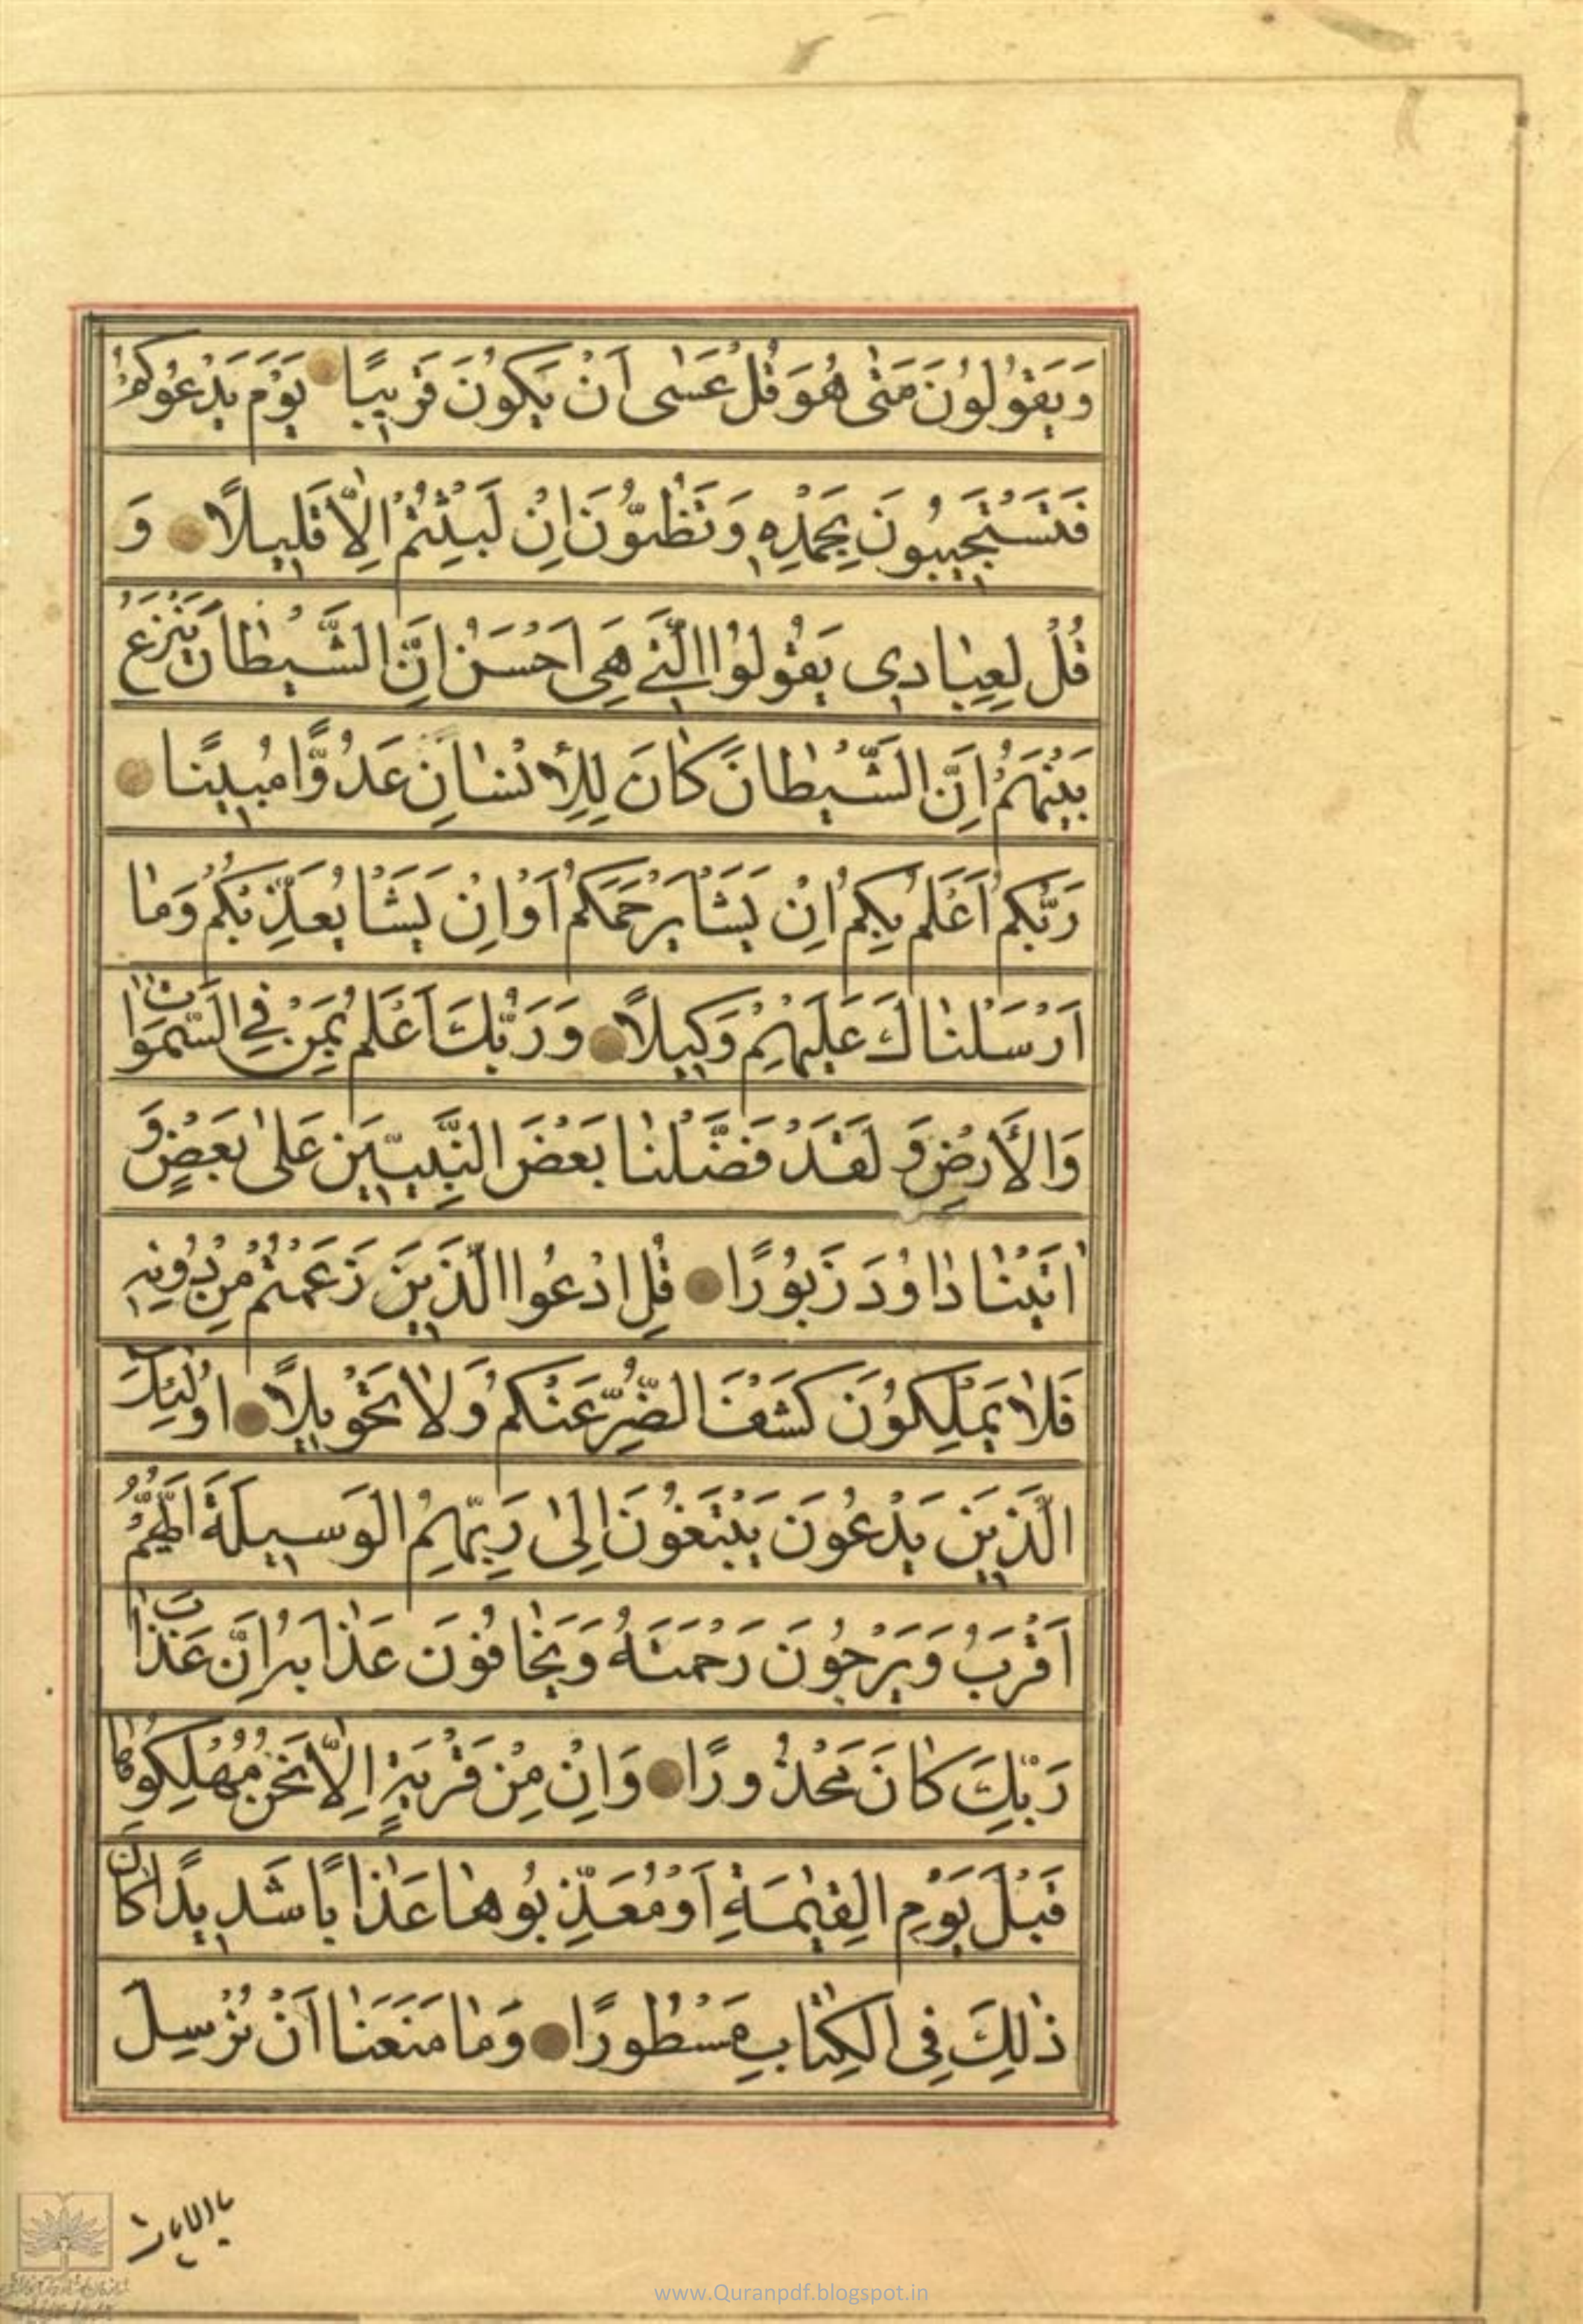 وَيَقُولُونَ مَتٰى هُوَ قُلْ عَسٰى اَنْ يَكُونَ قَرِيبًا يَوْمَ يَدْعُوكُمْ
فَتَسْتَجِيبُونَ بِحَمْدِهِ وَتَظُنُّونَ اِنْ لَبِثْتُمْ اِلَّا قَلِيلًا وَ
قُلْ لِعِبَادِى يَقُولُوا الَّتِى هِىَ اَحْسَنُ اِنَّ الشَّيْطَانَ يَنْزَغُ
بَيْنَهُمْ اِنَّ الشَّيْطَانَ كَانَ لِلْاِنْسَانِ عَدُوًّا مُبِينًا
رَبُّكُمْ اَعْلَمُ بِكُمْ اِنْ يَشَأْ يَرْحَمْكُمْ اَوْ اِنْ يَشَأْ يُعَذِّبْكُمْ وَمَا
اَرْسَلْنَاكَ عَلَيْهِمْ وَكِيلًا وَرَبُّكَ اَعْلَمُ بِمَنْ فِى السَّمٰوَاتِ
وَالْاَرْضِ وَ لَقَدْ فَضَّلْنَا بَعْضَ النَّبِيِّينَ عَلٰى بَعْضٍ وَ
اٰتَيْنَا دَاوُدَ زَبُورًا قُلِ ادْعُوا الَّذِينَ زَعَمْتُمْ مِنْ دُونِهِ
فَلَا يَمْلِكُونَ كَشْفَ الضُّرِّ عَنْكُمْ وَلَا تَحْوِيلًا اُولٰئِكَ
الَّذِينَ يَدْعُونَ يَبْتَغُونَ اِلٰى رَبِّهِمُ الْوَسِيلَةَ اَيُّهُمْ
اَقْرَبُ وَيَرْجُونَ رَحْمَتَهُ وَيَخَافُونَ عَذَابَهُ اِنَّ عَذَابَ
رَبِّكَ كَانَ مَحْذُورًا وَاِنْ مِنْ قَرْيَةٍ اِلَّا نَحْنُ مُهْلِكُوهَا
قَبْلَ يَوْمِ الْقِيٰمَةِ اَوْ مُعَذِّبُوهَا عَذَابًا شَدِيدًا كَانَ
ذٰلِكَ فِى الْكِتَابِ مَسْطُورًا وَمَا مَنَعَنَا اَنْ نُرْسِلَ
بالايات
www.Quranpdf.blogspot.in